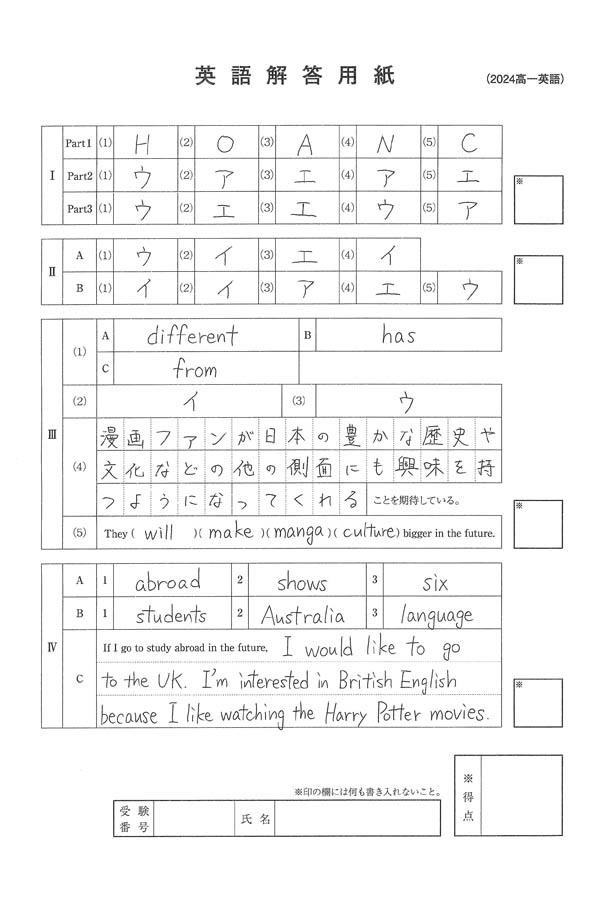 英語解答用紙
(2024高一英語)
I Part1 (1) H (2) O (3) A (4) N (5) C
Part2 (1) ウ (2) ア (3) エ (4) ア (5) エ
Part3 (1) ウ (2) エ (3) エ (4) ウ (5) ア
※
II A (1) ウ (2) イ (3) エ (4) イ
B (1) イ (2) イ (3) ア (4) エ (5) ウ
※
III (1) A different B has
C from
(2) イ (3) ウ
(4) 漫画ファンが日本の豊かな歴史や
文化などの他の側面にも興味を持
つようになってくれる ことを期待している。
(5) They ( will )( make )( manga )( culture ) bigger in the future.
※
IV A 1 abroad 2 shows 3 six
B 1 students 2 Australia 3 language
C If I go to study abroad in the future, I would like to go
to the UK. I'm interested in British English
because I like watching the Harry Potter movies.
※
※印の欄には何も書き入れないこと。
受験番号 氏名
※得点